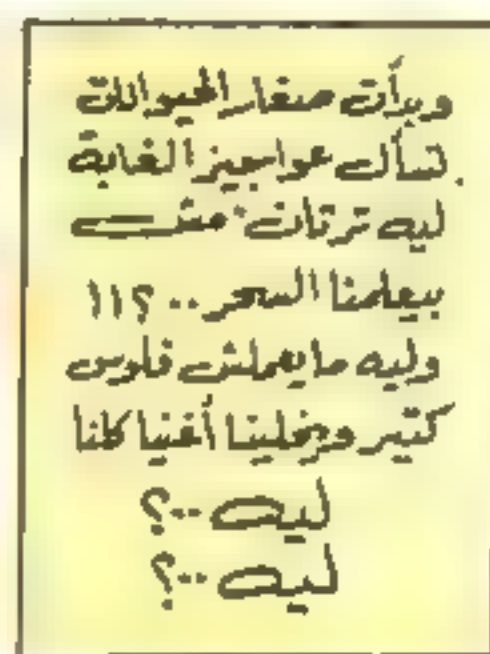 وبدأت صغار الحيوانات
تسأل عواجيز الغابة
ليه ترتان مش
بيعلمنا السحر..؟!!
وليه مايعملش فلوس
كتير ويخلينا أغنيا كلنا
ليه..؟
ليه..؟